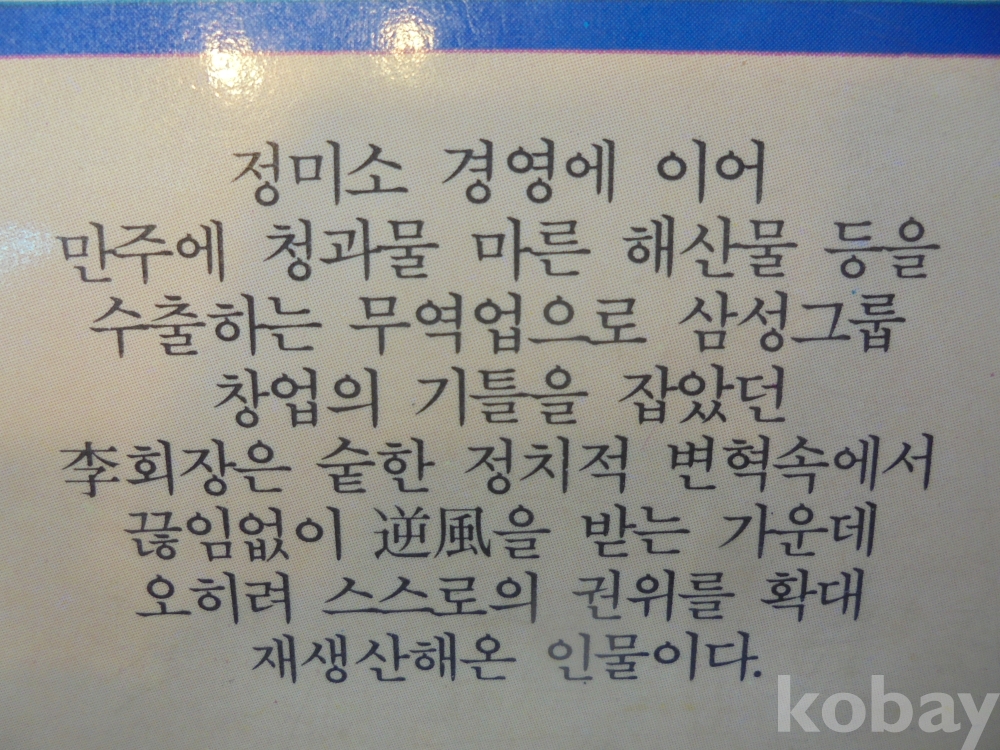 정미소 경영에 이어
만주에 청과물 마른 해산물 등을
수출하는 무역업으로 삼성그룹
창업의 기틀을 잡았던
李회장은 숱한 정치적 변혁속에서
끊임없이 逆風을 받는 가운데
오히려 스스로의 권위를 확대
재생산해온 인물이다.
kobay